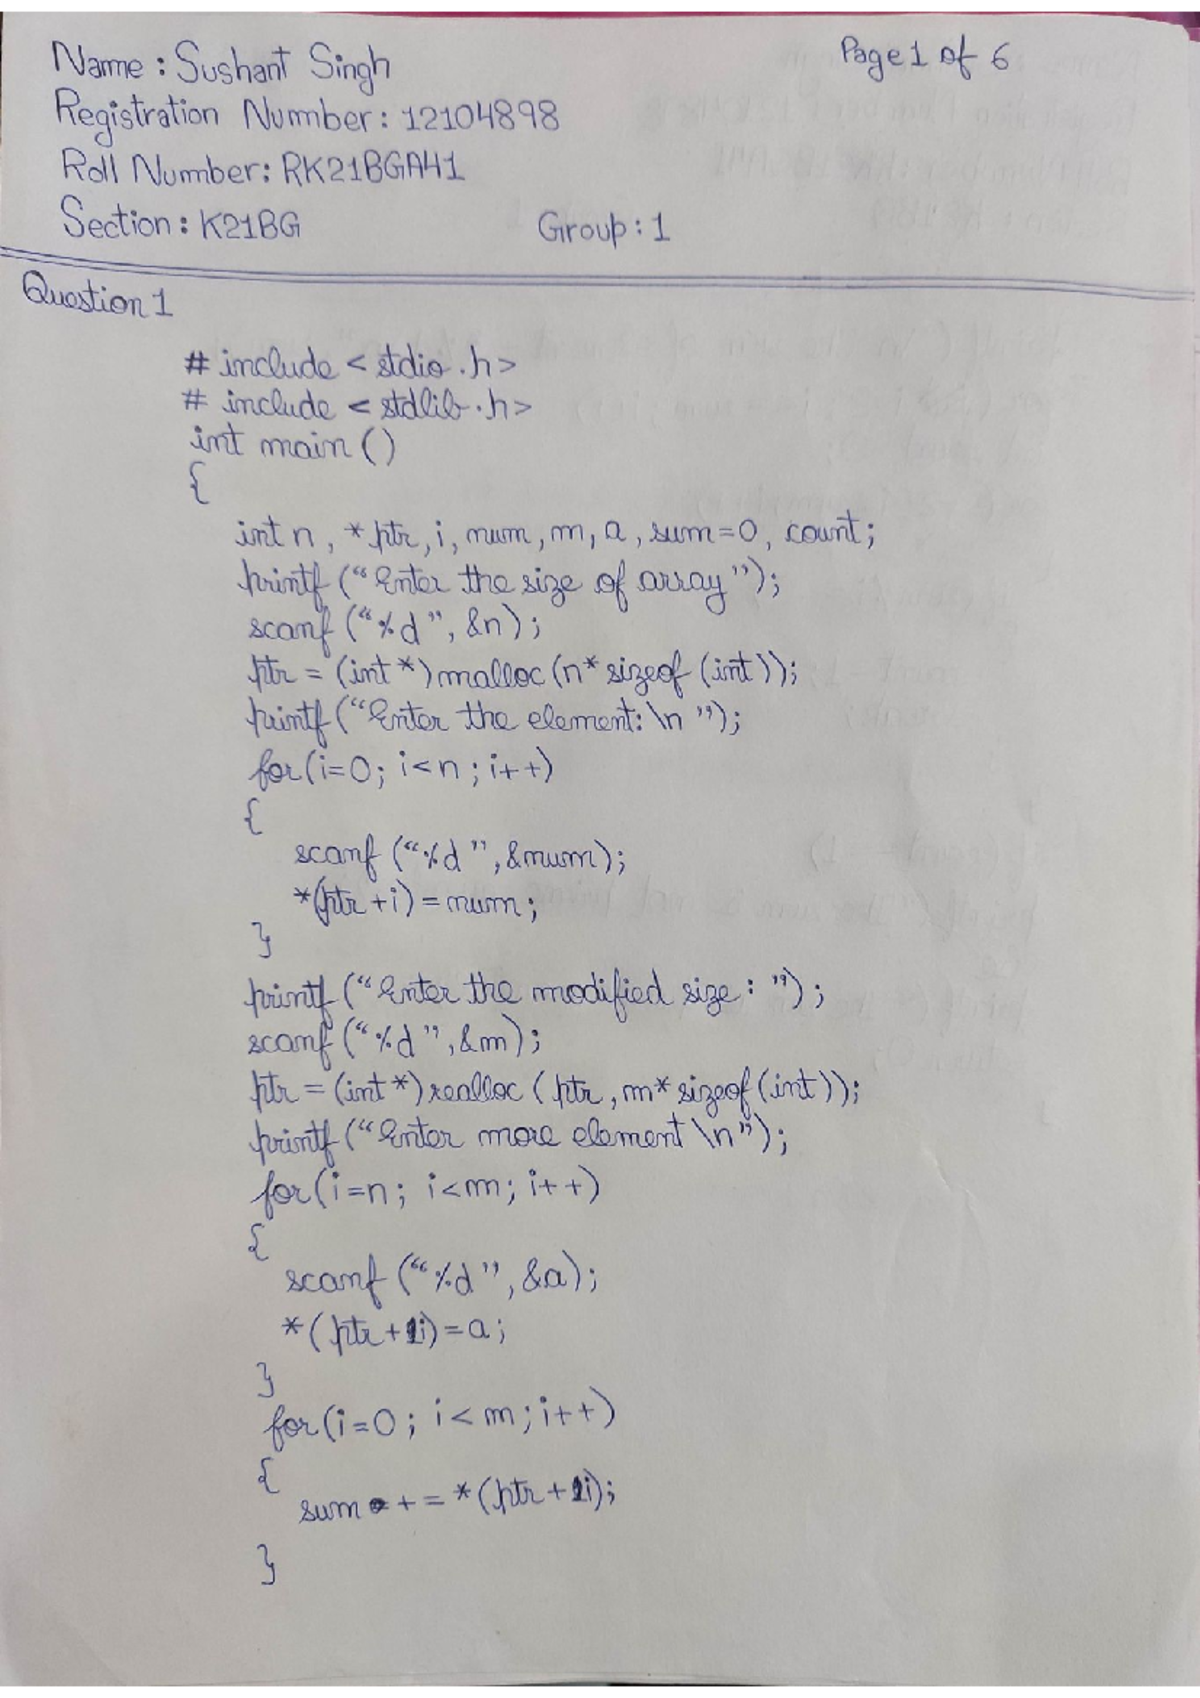 Name : Sushant Singh
Page 1 of 6
Registration Number : 12104898
Roll Number: RK21BGA41
Section : K21BG Group : 1
Question 1
# include < stdio .h>
# include < stdlib .h>
int main ()
{
int n , * ptr , i , num , m , a , sum=0 , count ;
printf (“Enter the size of array”);
scanf (“%d”, &n);
ptr = (int *) malloc (n* sizeof (int));
printf (“Enter the element: \n ”);
for (i=0; i<n ; i++)
{
scanf (“%d”, &num);
*(ptr +i) = num ;
}
printf (“Enter the modified size : ”) ;
scanf (“%d”, &m);
ptr = (int *) realloc ( ptr , m* sizeof (int));
printf (“Enter more element \n”);
for (i=n; i<m; i++)
{
scanf (“%d”, &a);
*( ptr +i) = a ;
}
for (i=0 ; i< m ; i++)
{
sum += *(ptr +i);
}